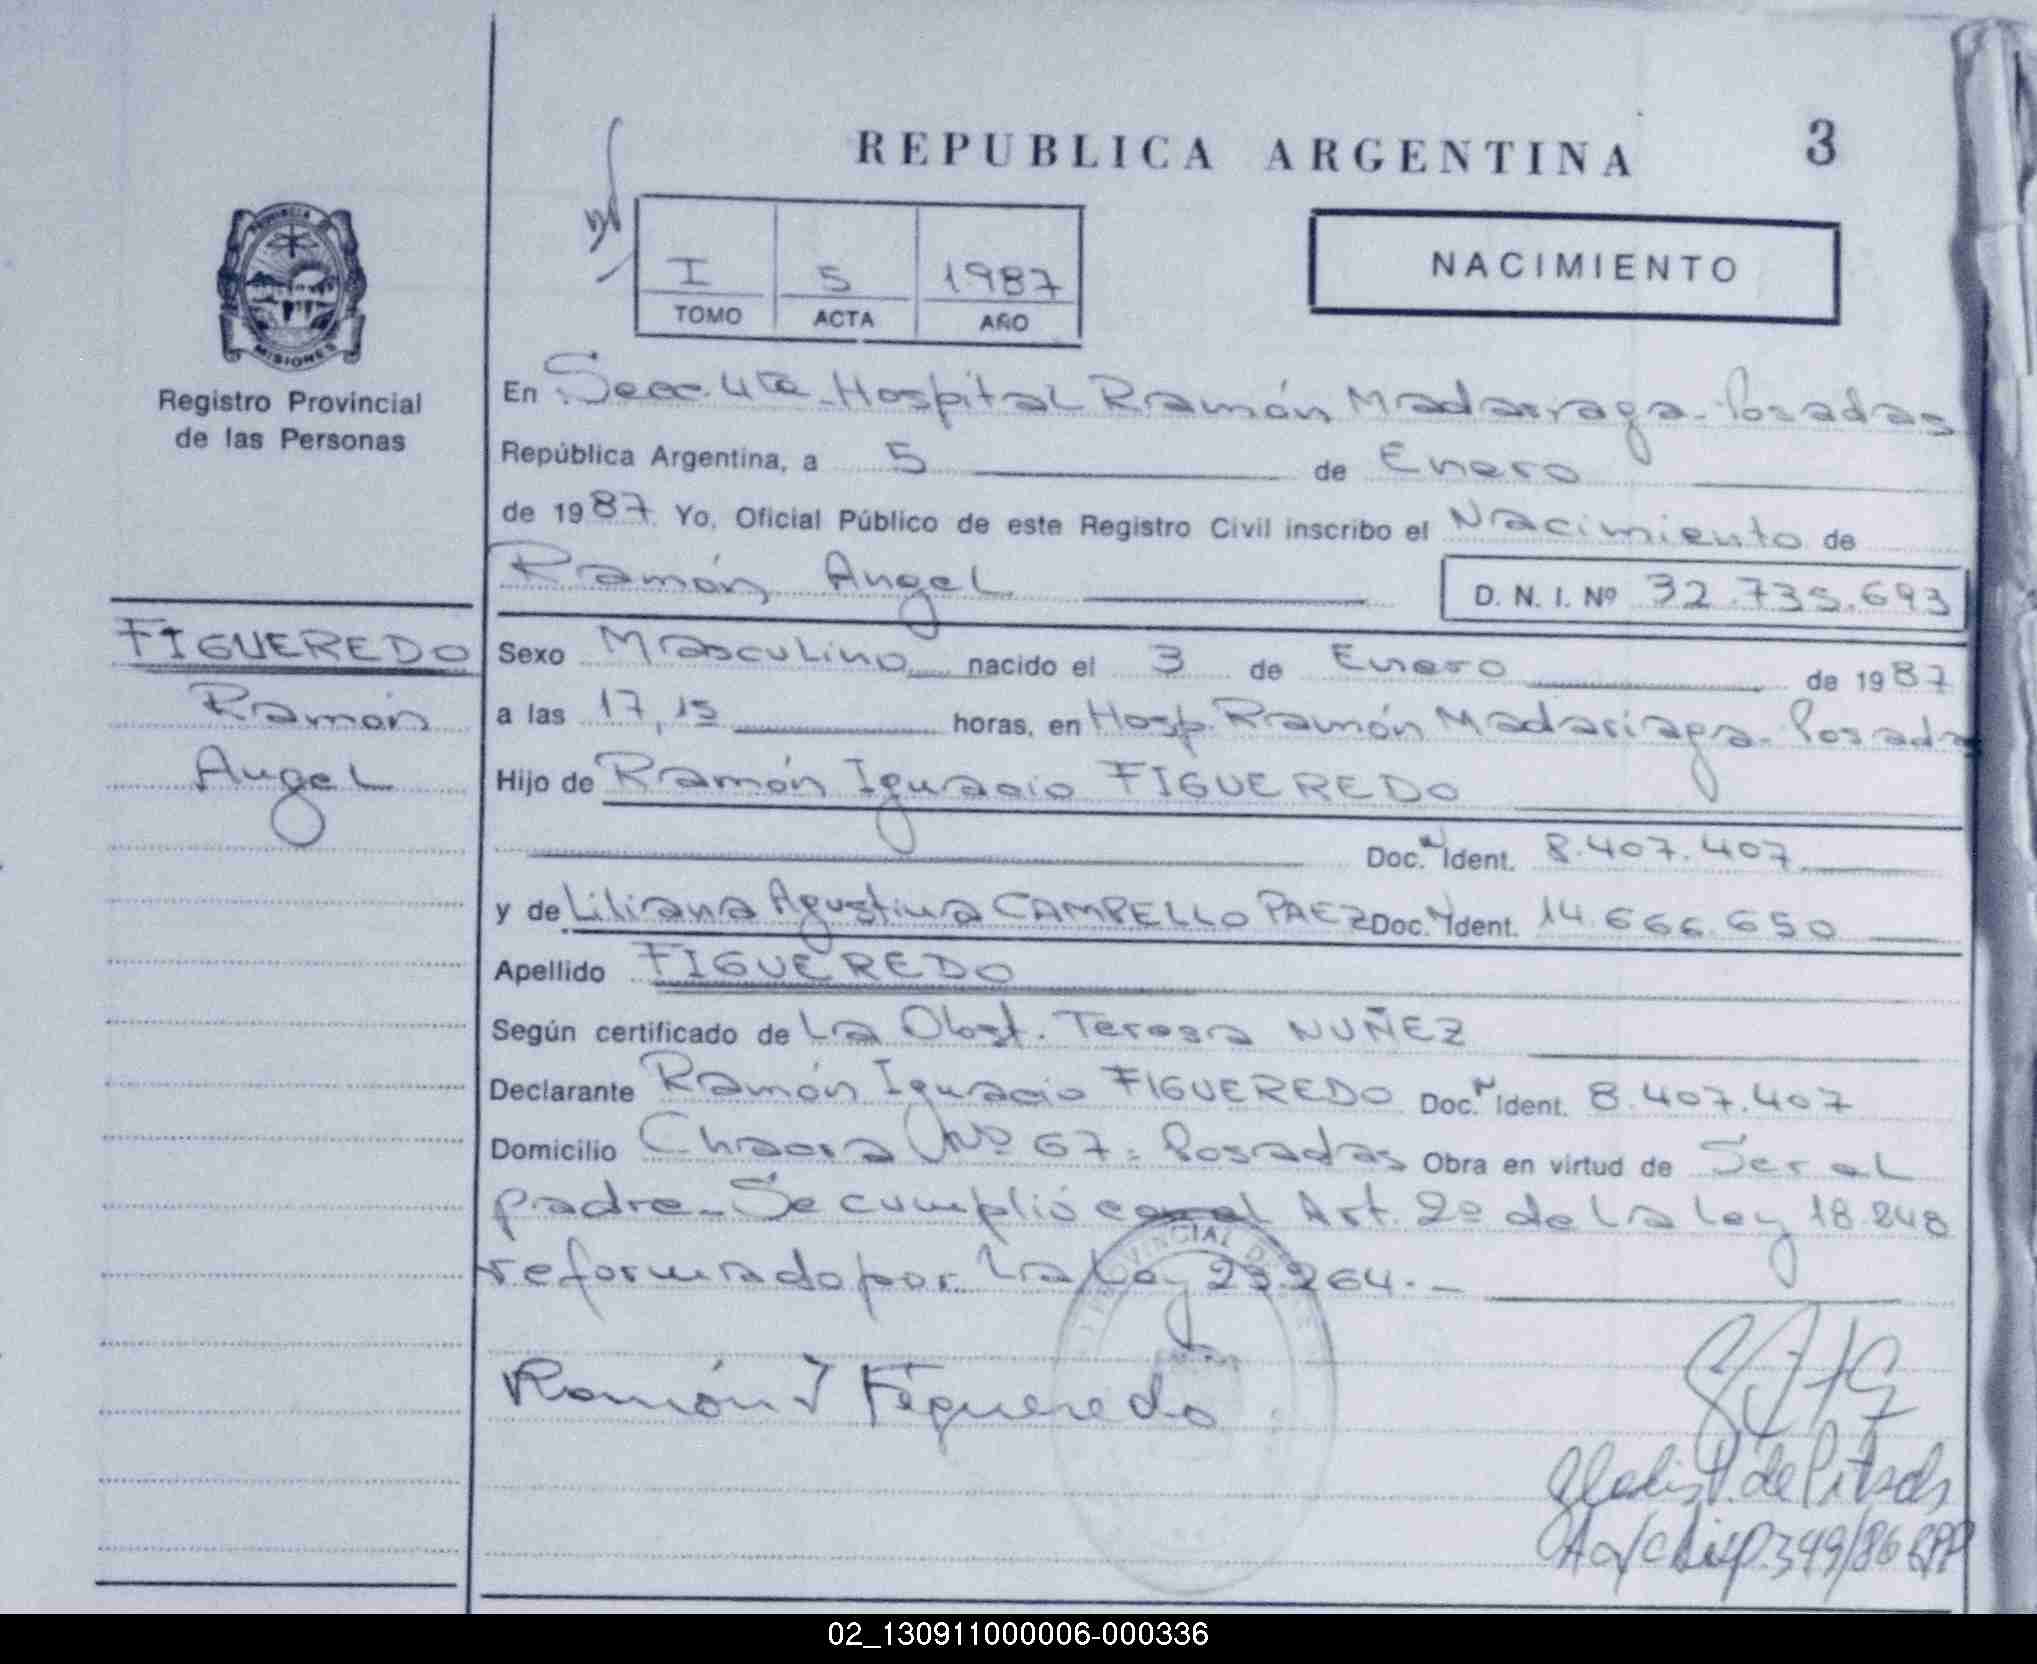 REPUBLICA ARGENTINA 3
PROVINCIA
MISIONES
Registro Provincial
de las Personas
I 5 1987
TOMO ACTA AÑO
NACIMIENTO
En Secc. 4ta. Hospital Ramón Madarraga - Posadas
República Argentina, a 5 de Enero
de 1987 Yo, Oficial Público de este Registro Civil inscribo el Nacimiento de
Ramón Angel D. N. I. Nº 32.735.693
FIGUEREDO
Ramón
Angel
Sexo Masculino nacido el 3 de Enero de 1987
a las 17,15 horas, en Hosp. Ramón Madariaga - Posadas
Hijo de Ramón Ignacio FIGUEREDO
Doc. N Ident. 8.407.407
y de Liliana Agustina CAMPELLO PAEZ Doc. N Ident. 14.666.650
Apellido FIGUEREDO
Según certificado de La Obst. Teresa NUÑEZ
Declarante Ramón Ignacio FIGUEREDO Doc. N Ident. 8.407.407
Domicilio Chacra Nº 67 - Posadas Obra en virtud de Ser el
padre - Se cumplió con el Art. 2º de la Ley 18.248
reformado por la Ley 23.264.-
Ramón I Figueredo
de
349/86 RPP
02_130911000006-000336